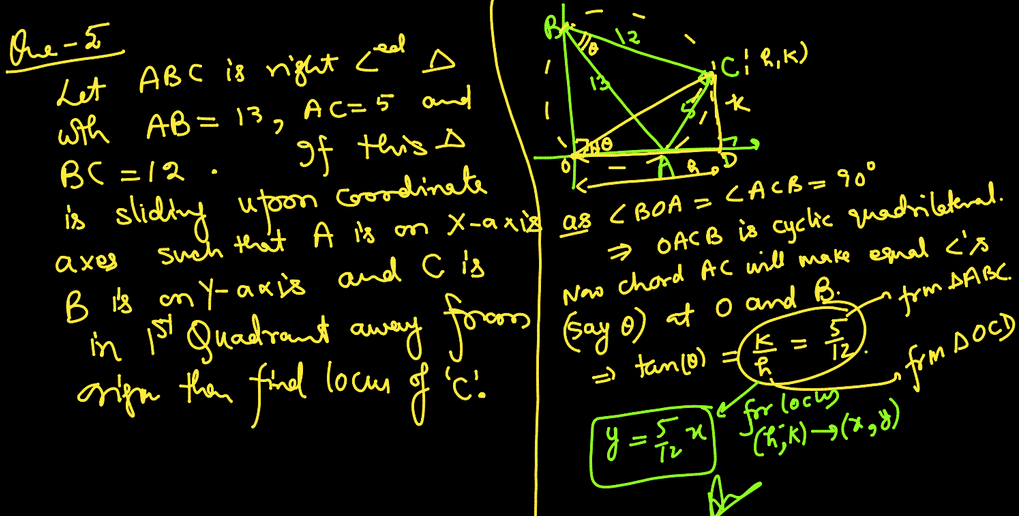 Que-5
Let ABC is right ∠ed Δ
with AB = 13, AC = 5 and
BC = 12. If this Δ
is sliding upon coordinate
axes such that A is on X-axis
B is on Y-axis and C is
in 1st Quadrant away from
origin then find locus of 'C'.
B
θ
12
C(h,k)
13
5
k
O
θ
A
h
D
as ∠BOA = ∠ACB = 90°
⇒ OACB is cyclic quadrilateral.
Now chord AC will make equal ∠'s
(say θ) at O and B.
⇒ tan(θ) = k/h = 5/12.
from ΔABC.
from ΔOCD
for locus
(h,k) → (x,y)
y = 5/12 x